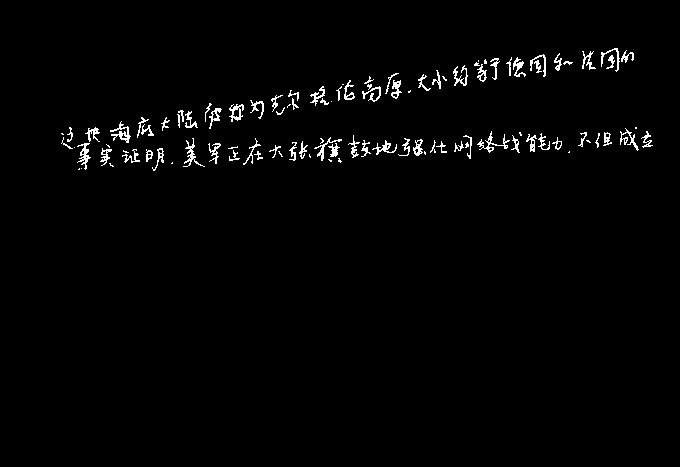 这块海底大陆被称为克尔格伦高原，大小约等于德国和法国的
事实证明，美军正在大张旗鼓地强化网络战能力，不但成立